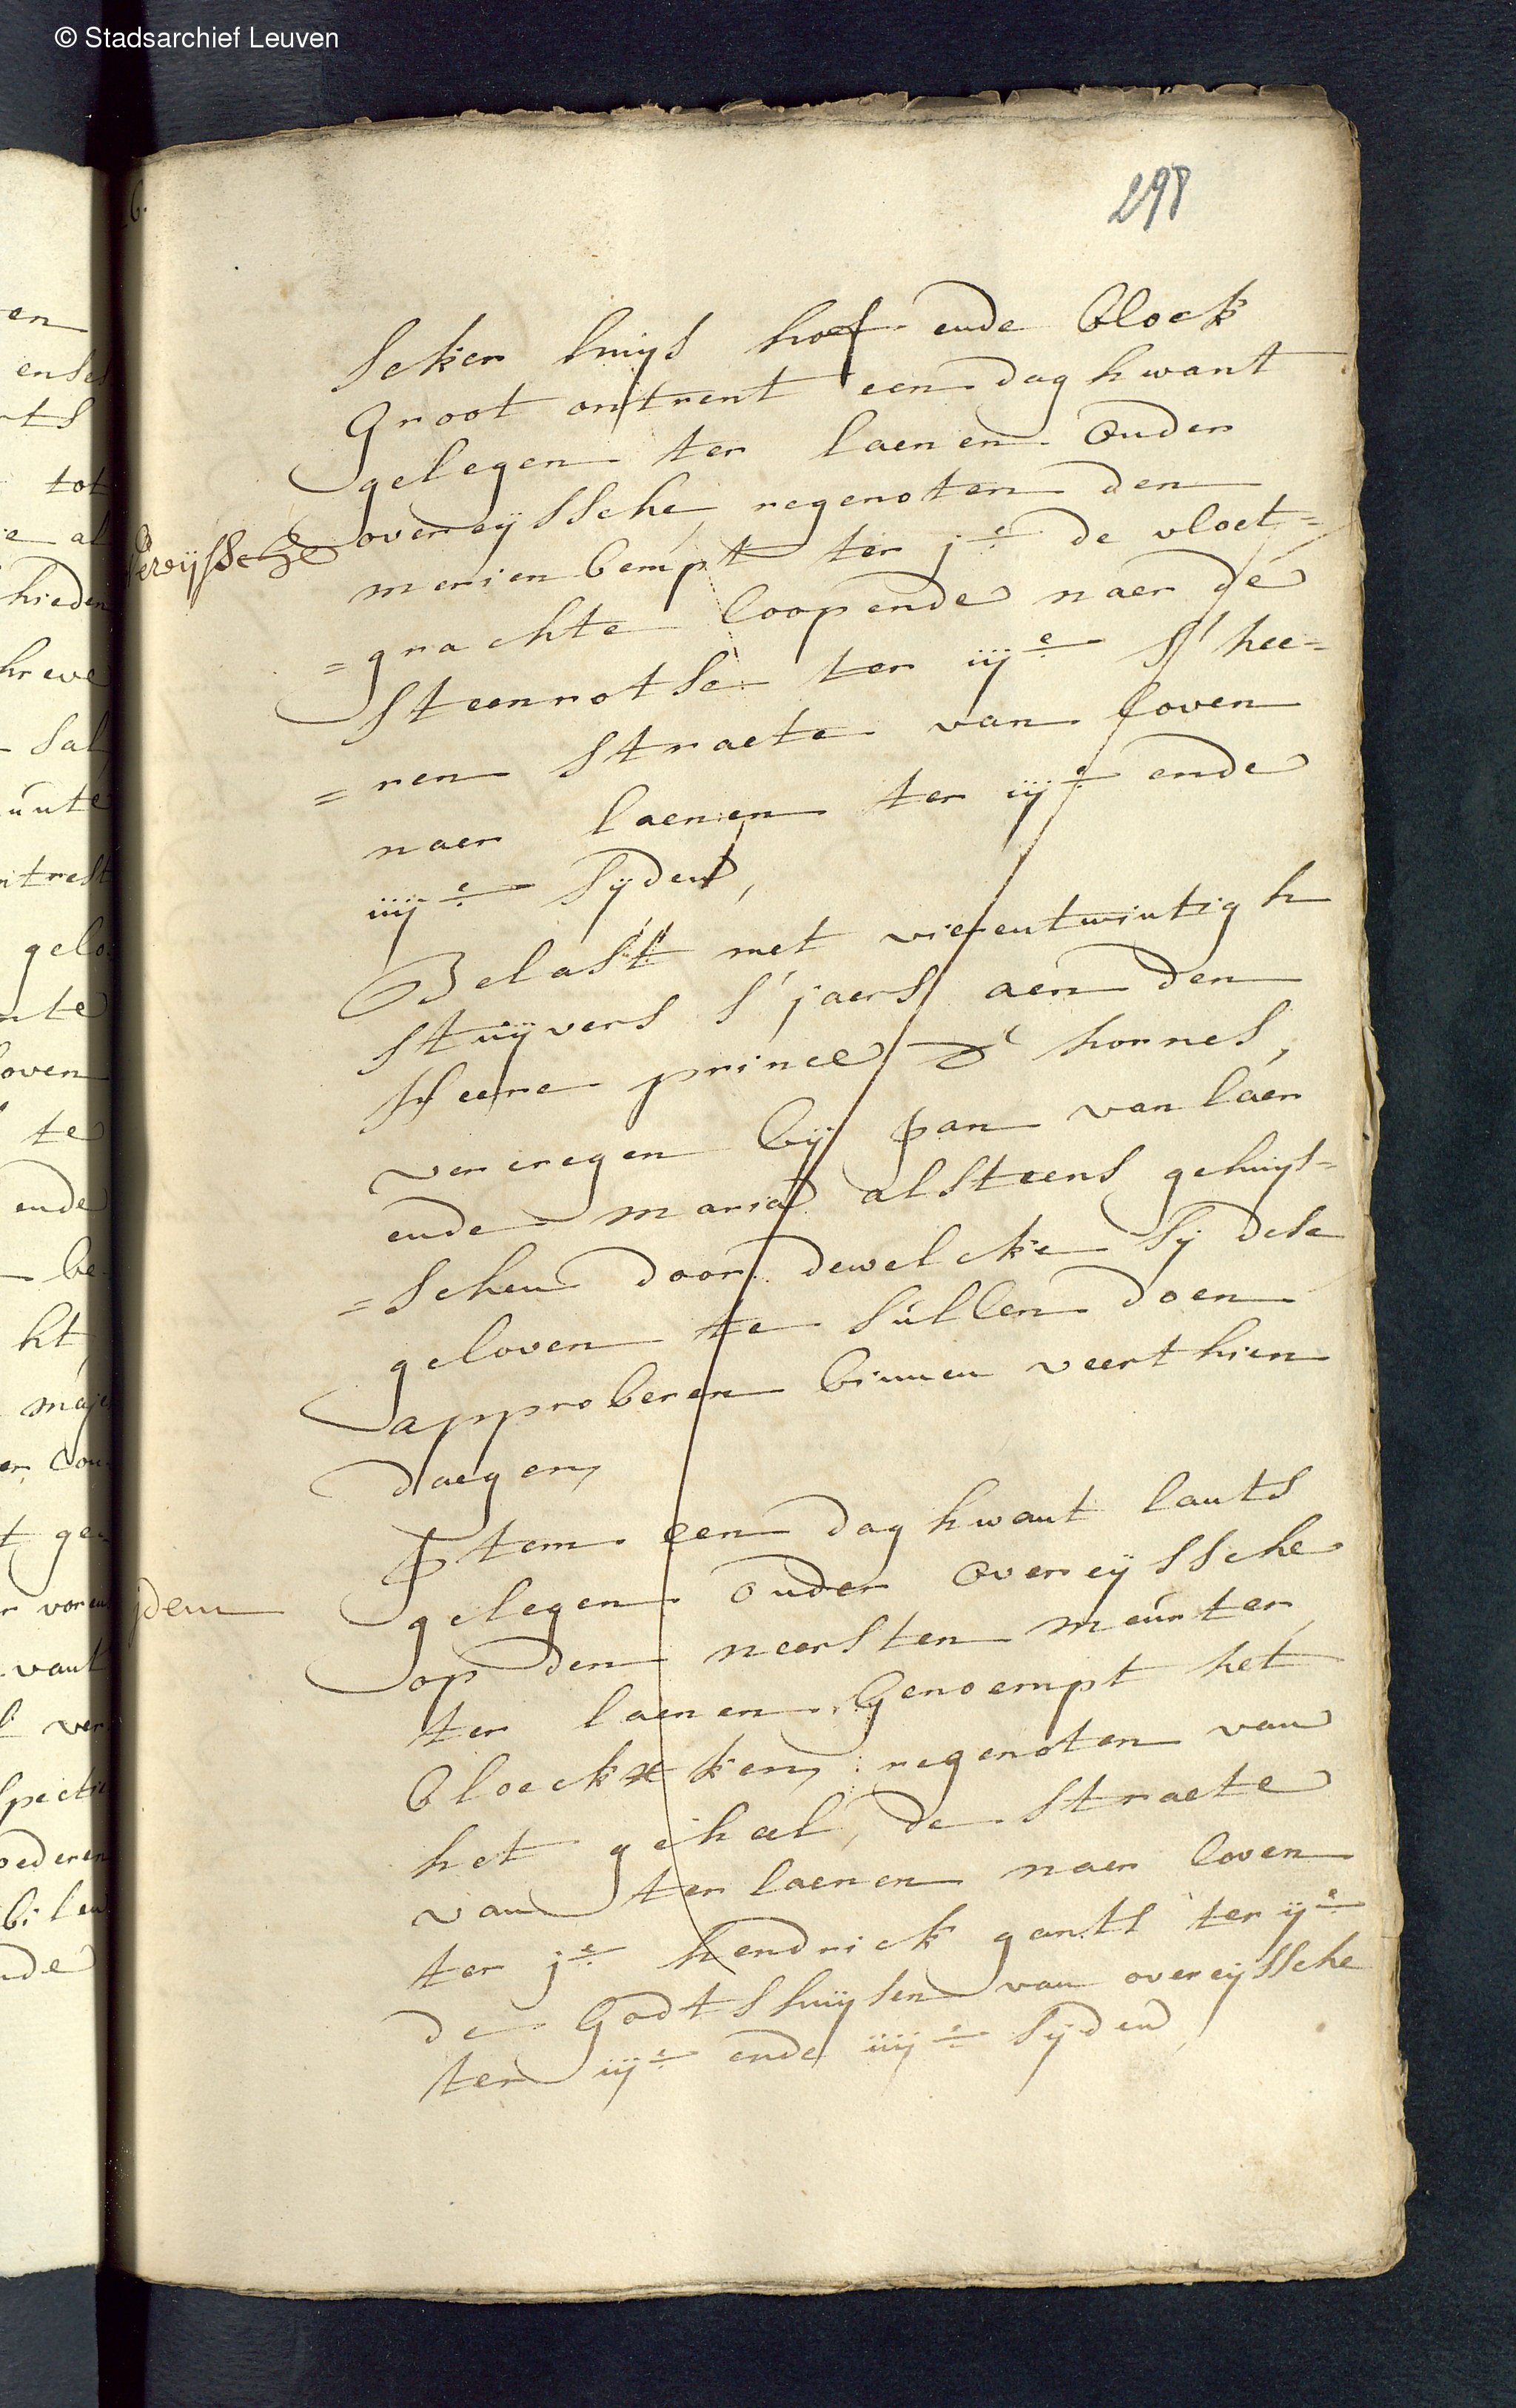 © Stadsarchief Leuven
298
seker huijs hof ende block
Groot ontrent een daghwant
gelegen ter laenen onder
overeijssche, regenoten den
merien bempt ter j.e de vloet=
=grachte loopende naer de
steenrotse ter ij.e s'hee=
=ren straete van loven
naer laenen ter iij.e ende
iiij.e sijden,
Belast met vierentwintigh
stuijvers s'jaers aen den
Heere prince d'hornes,
vercregen bij Jan van laer
ende maria alsteens gehuijs=
=schen door dewelcke sij dese
geloven te sullen doen
approberen binnen veerthien
daegen,
Item een daghwant lants
gelegen onder overeijssche
op den neersten meunter
ter laenen, Genoempt het
bloeckxken, regenoten van
het geheel, de straete
van ter laenen naer loven
ter j.e hendrick gants ter ij.e
de Godtshuijsen van overeijssche
ter iij.e ende iiij.e sijden,
jdem